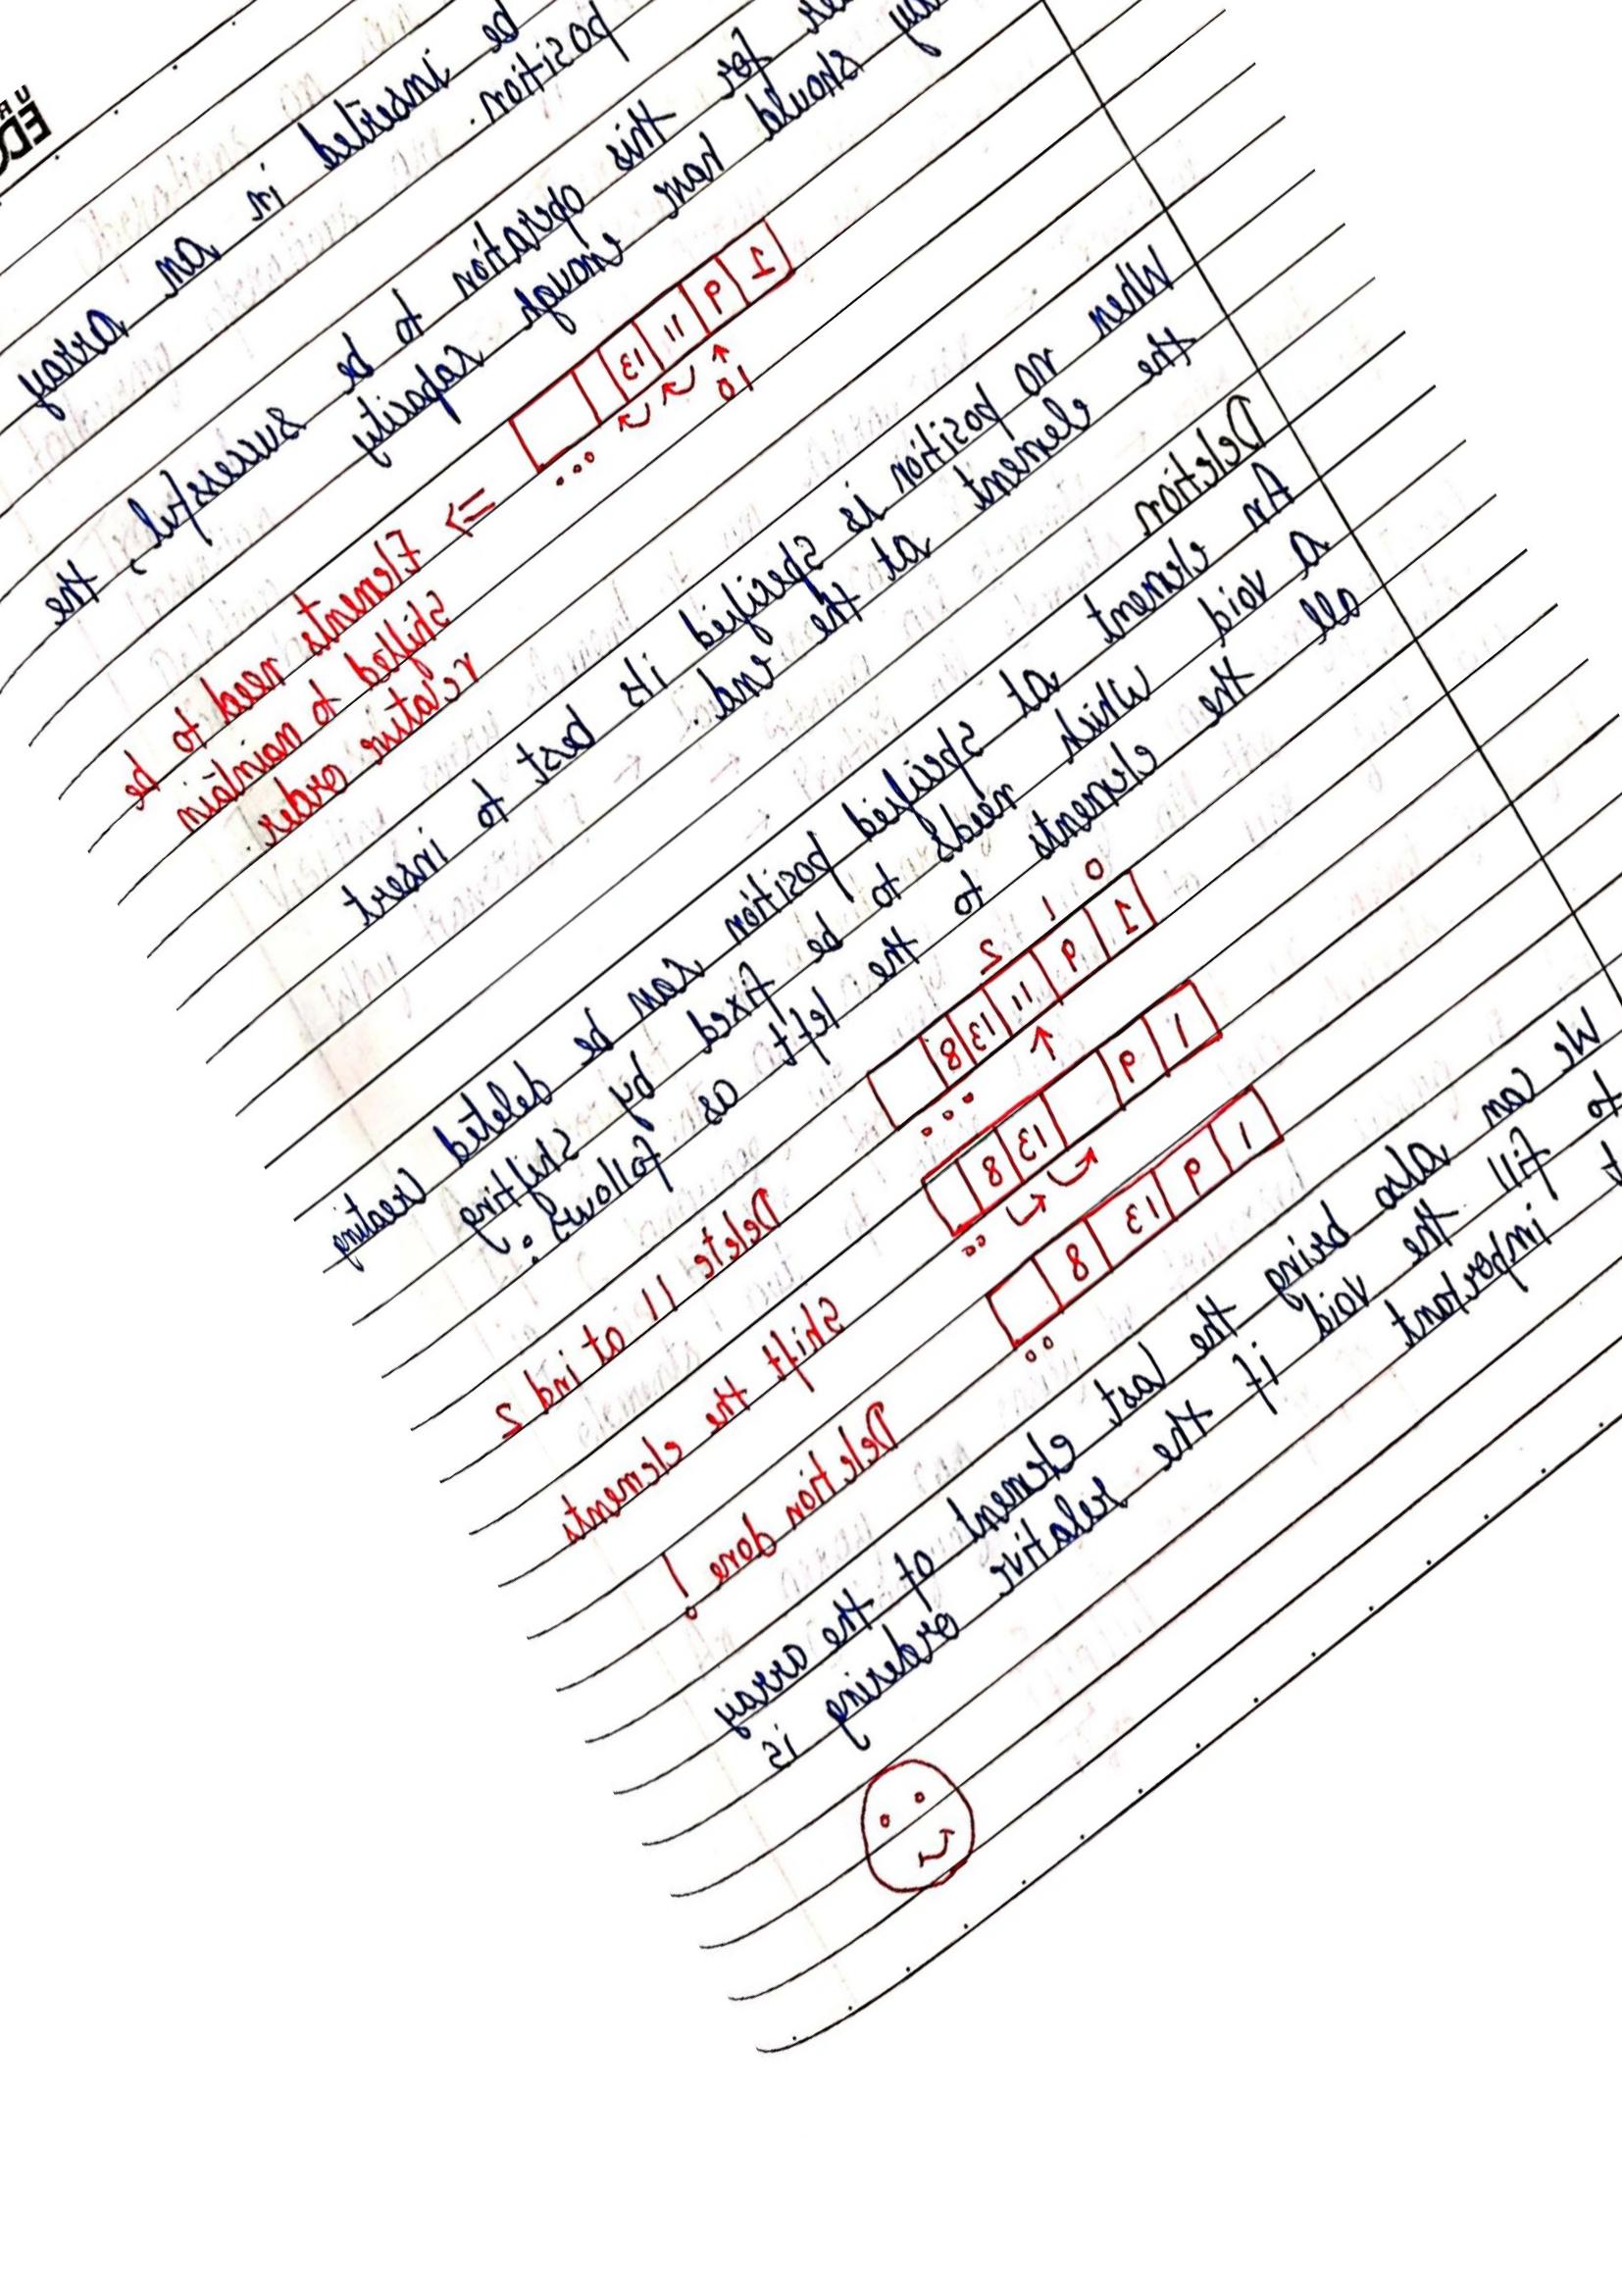 be inserted in an array
position.
for this operation to be successful, the
should have enough capacity
1 9 11 13 ...
10
=> Elements need to be
shifted to maintain
relative order.
When no position is specified its best to insert
the element at the end.
Deletion
An element at specified position can be deleted creating
a void which needs to be fixed by shifting
all the elements to the left as follows :
0 1 2
1 9 11 13 8 ... Delete 11 at ind 2
1 9 13 8 .. Shift the elements
1 9 13 8 .. Deletion done !
We can also bring the last element of the array
to fill the void if the relative ordering is
important